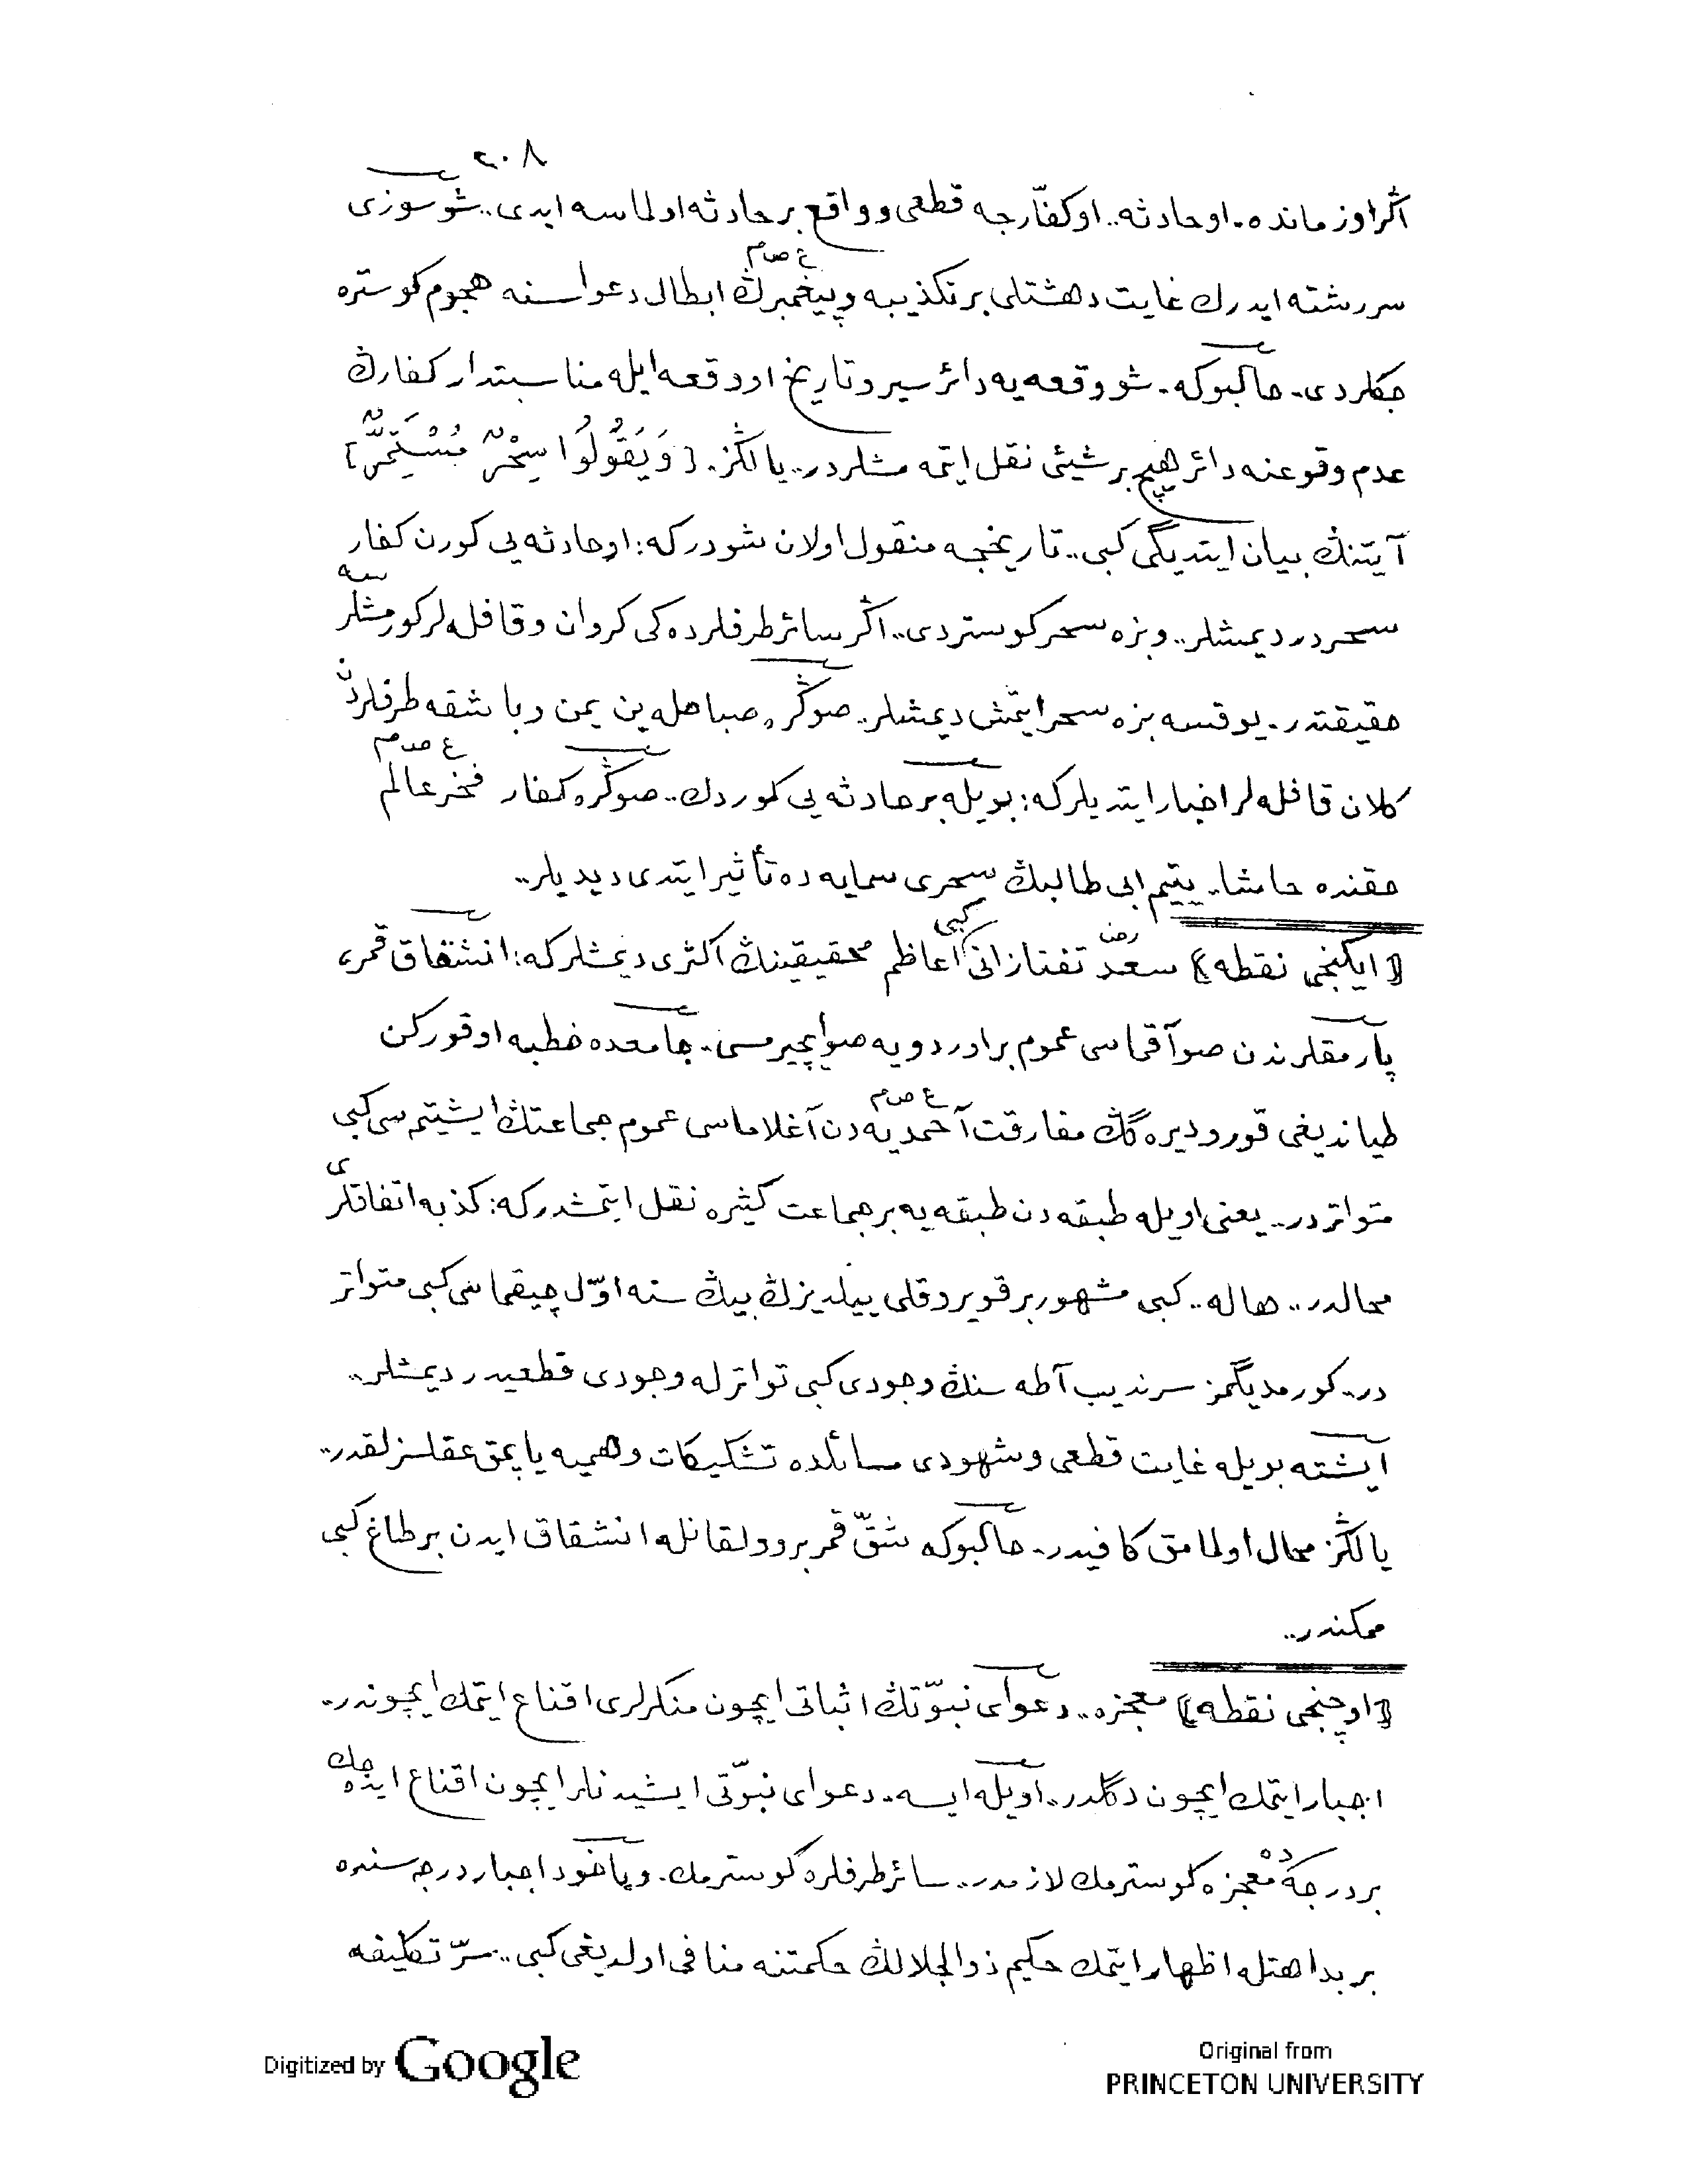 ٢٠٨
اڭر او زمانده. او حادثه.. او كفّارجه قطعی و واقع بر حادثه اولماسه ایدی.. شو سوزی
سررشته ایدرك غایت دهشتلی بر تكذیبه و پیغمبرڭ ع ص م ابطال دعواسنه هجوم كوستره
جكلردی. حالبوكه. شو وقعه‌یه دائر سیر و تاریخ او وقعه ایله مناسبتدار كفارڭ
عدم وقوعنه دائر هیچ بر شیئی نقل ایتمه مشلردر.. یالڭز. [وَيَقُولُوا سِحْرٌ مُسْتَمِرٌّ]
آیتنڭ بیان ایتدیگی كبی.. تاریخجه منقول اولان شودركه: او حادثه یی كورن كفار
سحردر دیمشلر.. و بزه سحر كوستردی.. اڭر سائر طرفلرده كی كروان و قافله لر كورمشلرسه
حقیقتدر. یوقسه بزه سحر ایتمش دیمشلر.. صوڭره صباحله ین یمن و باشقه طرفلردن
كلان قافله لر اخبار ایتدیلركه: بویله بر حادثه یی كوردك.. صوڭره كفار فخر عالم ع ص م
حقنده حاشا.. یتیم ابی طالبڭ سحری سمایه ده تأثیر ایتدی دیدیلر..
﴿ایكنجی نقطه﴾ سعد تفتازانی رض كبی اعاظم محقیقینڭ اكثری دیمشلركه: انشقاق قمر،
پارمقلرندن صو آقماسی عموم بر اوردویه صو ایچیرمسی. جامعده خطبه اوقوركن
طیاندیغی قورو دیره گڭ مفارقت آحمدیه ع ص م دن آغلاماسی عموم جماعتڭ ایشیتمسی كبی
متواتردر.. یعنی اویله طبقه دن طبقه یه بر جماعت كثیره نقل ایتمشدركه: كذبه اتفاقلری
محالدر.. هاله.. كبی مشهور بر قویروقلی ییلدیزڭ بیڭ سنه اوّل چیقماسی كبی متواتر
در.. كورمدیگمز سرندیب آطه سنڭ وجودی كبی تواترله وجودی قطعیدر دیمشلر..
آیشته بویله غایت قطعی و شهودی مسائلده تشكیكات وهمیه یاپمق عقلسزلقدر..
یالڭز محال اولمامق كافیدر. حالبوكه شقّ قمر بر وولقانله انشقاق ایدن بر طاغ كبی
ممكندر..
﴿اوچنجی نقطه﴾ معجزه.. دعوای نبوّتڭ اثباتی ایچون منكرلری اقناع ایتمك ایچوندر.
اجبار ایتمك ایچون دگلدر. اویله ایسه. دعوای نبوّتی ایشیدنلر ایچون اقناع ایده جك
بر درجه ده معجزه كوسترمك لازمدر.. سائر طرفلره كوسترمك. ویاخود اجبار درجه سنده
بر بداهتله اظهار ایتمك حكیم ذوالجلالڭ حكمتنه منافی اولدیغی كبی.. سرّ تكلیفه
Digitized by Google
Original from
PRINCETON UNIVERSITY